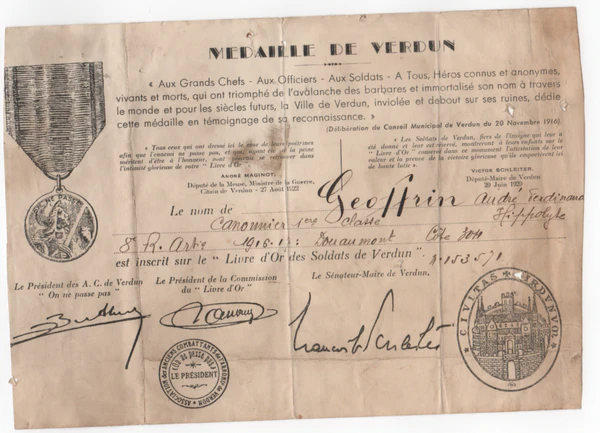 MEDAILLE DE VERDUN
« Aux Grands Chefs - Aux Officiers - Aux Soldats - A Tous, Héros connus et anonymes,
vivants et morts, qui ont triomphé de l'avalanche des barbares et immortalisé son nom à travers
le monde et pour les siècles futurs, la Ville de Verdun, inviolée et debout sur ses ruines, dédie
cette médaille en témoignage de sa reconnaissance. »
(Délibération du Conseil Municipal de Verdun du 20 Novembre 1916)
« Tous ceux qui ont dressé ici le mur de leurs poitrines
afin que l'ennemi ne passe pas, et
l'intimité glorieuse de votre " Livre d'Or "
ANDRÉ MAGINOT,
Député de la Meuse, Ministre de la Guerre,
Citain de Verdun - 27 Août 1922
« Les Soldats de Verdun, fiers de l'insigne qui leur a
été donné et leur est réservé, montreront à leurs enfants sur le
" Livre d'Or " conservé dans ce monument l'attestation de leur
valeur et la preuve de la victoire glorieuse qu'ils emportèrent ici
de haute lutte.
VICTOR SCHLEITER,
Député-Maire de Verdun
29 Juin 1929
Le nom de Geoffrin André Ferdinand
Hippolyte
Canonnier 1ère Classe
8e R. Artie 1916 Douaumont Côte 304
est inscrit sur le " Livre d'Or des Soldats de Verdun " 153.571
Le Président des A. C. de Verdun
" On ne passe pas "
Le Président de la Commission
du " Livre d'Or "
Le Sénateur-Maire de Verdun,
ON NE PASSE PAS
ASSOCIATION DES ANCIENS COMBATTANTS DE VERDUN
ON NE PASSE PAS
LE PRÉSIDENT
CIVITAS VIRDVNVM